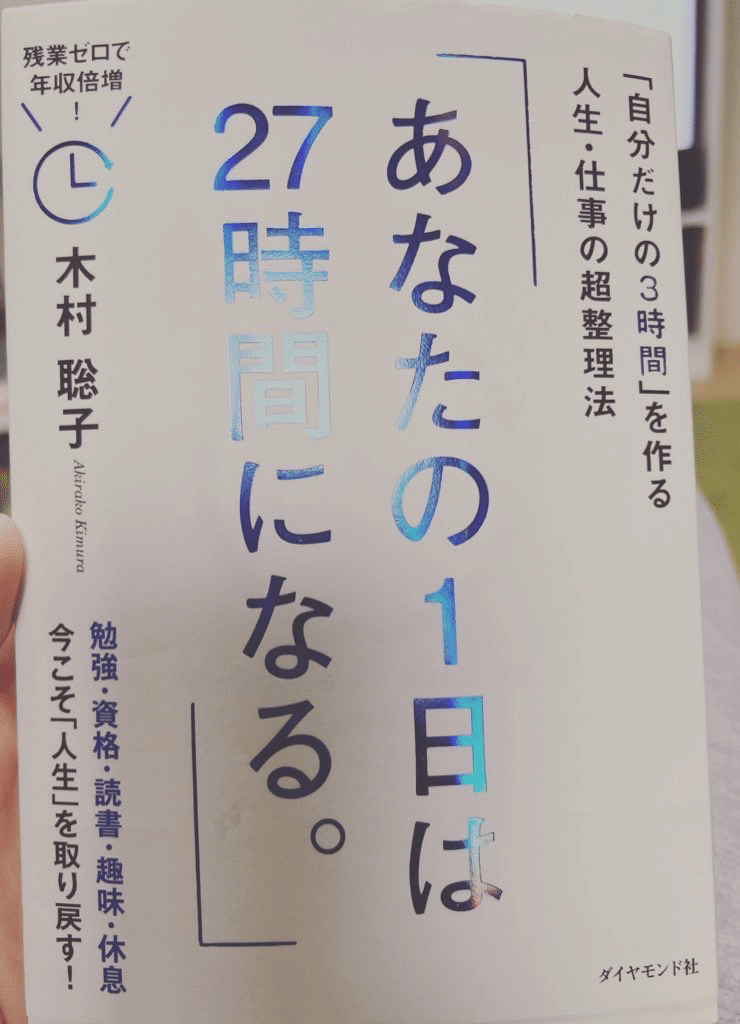 「自分だけの3時間」を作る
人生・仕事の超整理法
あなたの1日は
27時間になる。
残業ゼロで
年収倍増
!
木村 聡子
Akirako Kimura
勉強・資格・読書・趣味・休息
今こそ「人生」を取り戻す!
ダイヤモンド社